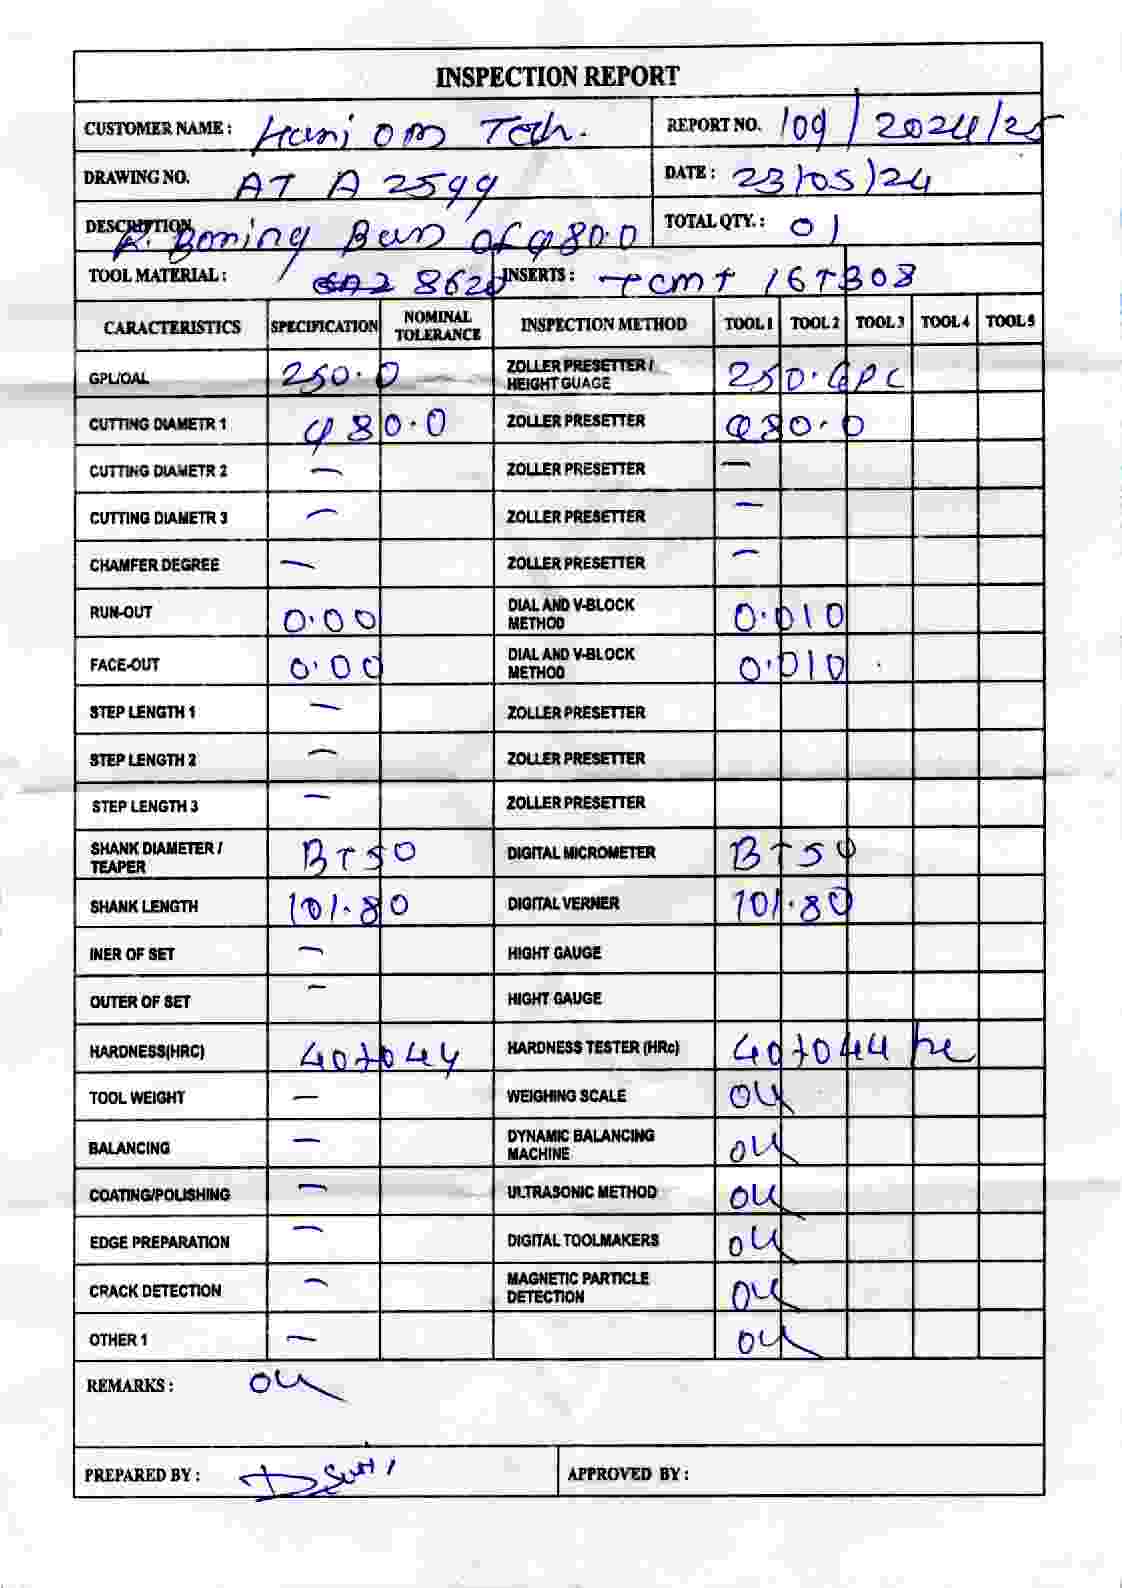 INSPECTION REPORT
CUSTOMER NAME : Hari OM Tech.
REPORT NO. 109 / 2024/25
DRAWING NO. AT A 2599
DATE : 23/05/24
DESCRIPTION R. Boring Bar of φ80.0
TOTAL QTY. : 01
TOOL MATERIAL : 8620 INSERTS : TCMT 16T308
CARACTERISTICS SPECIFICATION NOMINAL TOLERANCE INSPECTION METHOD TOOL 1 TOOL 2 TOOL 3 TOOL 4 TOOL 5
GPL/OAL 250.0 ZOLLER PRESETTER / HEIGHT GUAGE 250.
CUTTING DIAMETR 1 φ80.0 ZOLLER PRESETTER φ80.0
CUTTING DIAMETR 2 — ZOLLER PRESETTER —
CUTTING DIAMETR 3 — ZOLLER PRESETTER —
CHAMFER DEGREE — ZOLLER PRESETTER —
RUN-OUT 0.00 DIAL AND V-BLOCK METHOD 0.010
FACE-OUT 0.00 DIAL AND V-BLOCK METHOD 0.010
STEP LENGTH 1 — ZOLLER PRESETTER
STEP LENGTH 2 — ZOLLER PRESETTER
STEP LENGTH 3 — ZOLLER PRESETTER
SHANK DIAMETER / TEAPER BT50 DIGITAL MICROMETER BT50
SHANK LENGTH 101.80 DIGITAL VERNER 101.80
INER OF SET — HIGHT GAUGE
OUTER OF SET — HIGHT GAUGE
HARDNESS(HRC) 40to44 HARDNESS TESTER (HRc) 40to44
TOOL WEIGHT — WEIGHING SCALE OK
BALANCING — DYNAMIC BALANCING MACHINE OK
COATING/POLISHING — ULTRASONIC METHOD OK
EDGE PREPARATION — DIGITAL TOOLMAKERS OK
CRACK DETECTION — MAGNETIC PARTICLE DETECTION OK
OTHER 1 — OK
REMARKS : OK
PREPARED BY :
APPROVED BY :